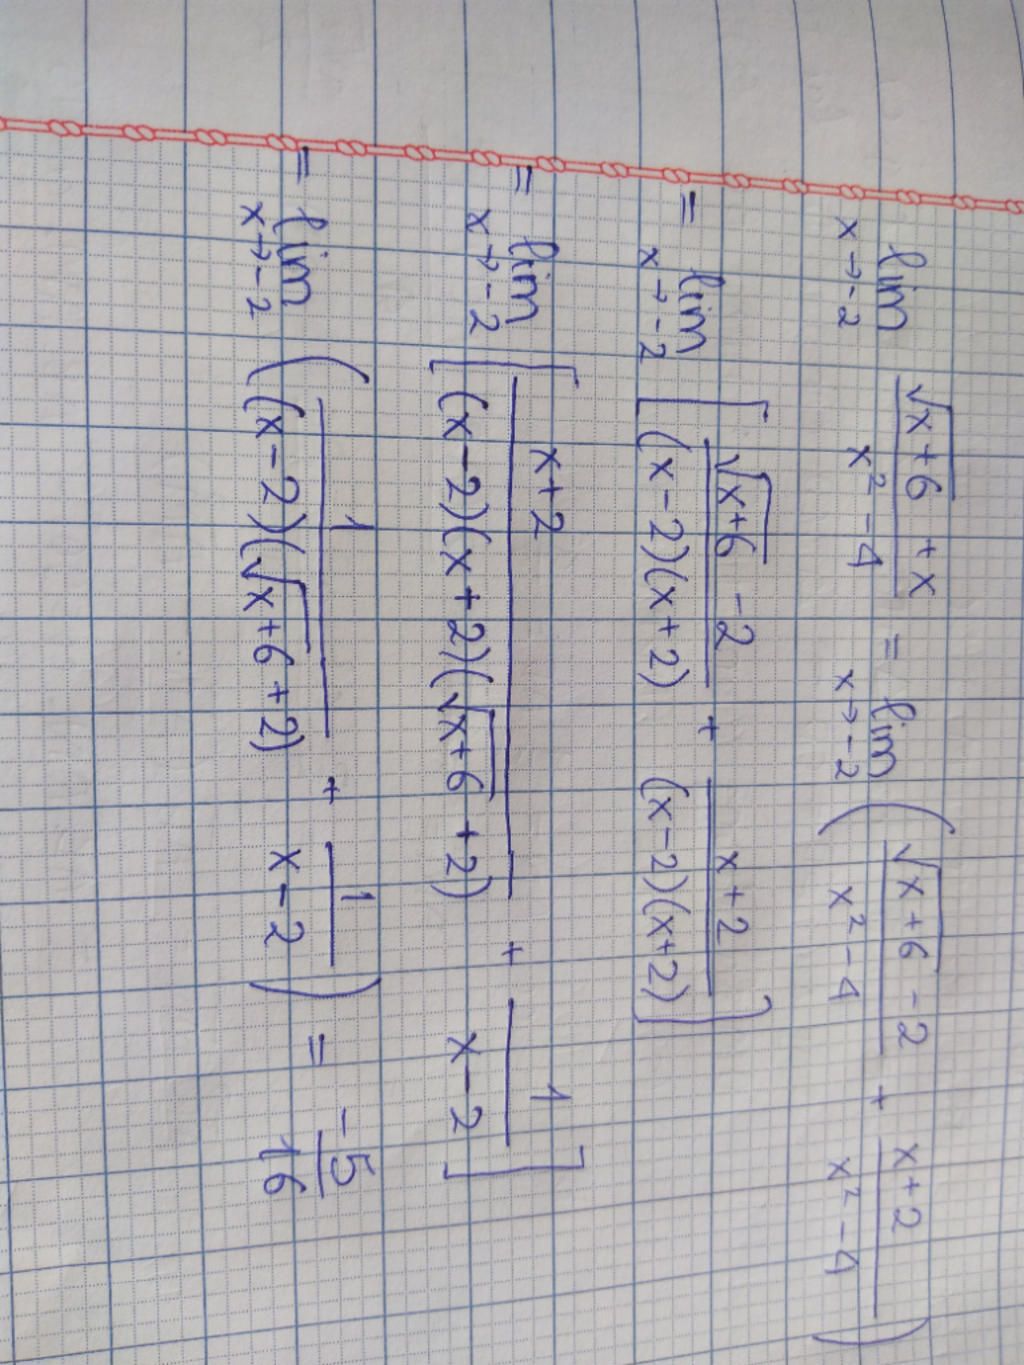 lim x→-2 (√(x+6) + x)/(x² - 4) = lim x→-2 ((√(x+6) - 2)/(x² - 4) + (x+2)/(x² - 4))
= lim x→-2 [(√(x+6) - 2)/((x-2)(x+2)) + (x+2)/((x-2)(x+2))]
= lim x→-2 [(x+2)/((x-2)(x+2)(√(x+6) + 2)) + 1/(x-2)]
= lim x→-2 (1/((x-2)(√(x+6) + 2)) + 1/(x-2)) = -5/16